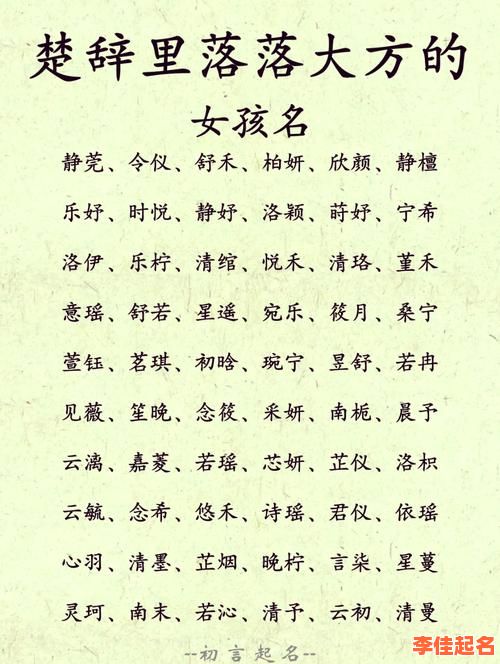 楚辞里落落大方的
女孩名
静莞、令仪、舒禾、柏妍、欣颜、静檀
乐妤、时悦、静妤、洛颖、莳妤、宁希
洛伊、乐柠、清绾、悦禾、清珞、堇禾
意瑶、舒若、星遥、宛乐、筱月、桑宁
萱钰、茗琪、初晗、琬宁、昱舒、若冉
见薇、笙晚、念筱、采妍、南栀、晨予
云漓、嘉菱、若瑶、芯妍、芷仪、洛枳
云毓、念希、悠禾、诗瑶、君仪、依瑶
心羽、清墨、芷烟、晚柠、言柒、星蔓
灵珂、南末、若沁、清予、云初、清曼
--初言起名--
李佳起名